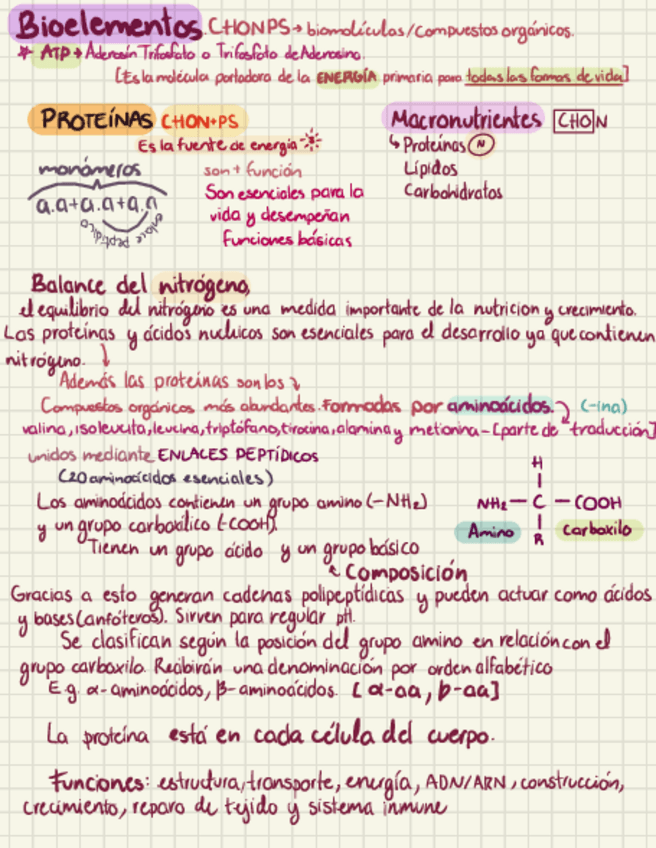 Bioelementos. CHONPS→ biomolículas/Compuestos orgánicos.
* ATP→ Adenosín Trifosfato o Trifosfato de Adenosina.
[Es la molécula portadora de la ENERGÍA primaria para todas las formas de vida]
PROTEÍNAS CHON+PS
Es la fuente de energía
monómeros
a.a+a.a+a.a
enlace peptídico
son + función
Son esenciales para la
vida y desempeñan
funciones básicas
Macronutrientes CHON
↳ Proteínas N
Lípidos
Carbohidratos
Balance del nitrógeno,
el equilibrio del nitrógeno es una medida importante de la nutricion y crecimiento.
Las proteínas y ácidos nucleicos son esenciales para el desarrollo ya que contienen
nitrógeno. ↓
Además las proteínas son los ↴
Compuestos orgánicos más abundantes. Formadas por aminoácidos. (-ina)
valina, isoleucita, leucina, triptófano, tirocina, alamina y metionina - [parte de traducción]
unidos mediante ENLACES PEPTÍDICOS
(20 aminoácidos esenciales)
Los aminoácidos contienen un grupo amino (-NH2)
y un grupo carboxílico (-COOH).
Tienen un grupo ácido y un grupo básico
Composición
H
NH2 — C — COOH
R
Amino Carboxilo
Gracias a esto generan cadenas polipeptídicas y pueden actuar como ácidos
y bases (anfóteros). Sirven para regular pH.
Se clasifican según la posición del grupo amino en relación con el
grupo carboxilo. Recibirán una denominación por orden alfabético
E.g. α-aminoácidos, β-aminoácidos. [α-aa, b-aa]
La proteína está en cada célula del cuerpo.
Funciones: estructura, transporte, energía, ADN/ARN, construcción,
crecimiento, reparo de tejido y sistema inmune